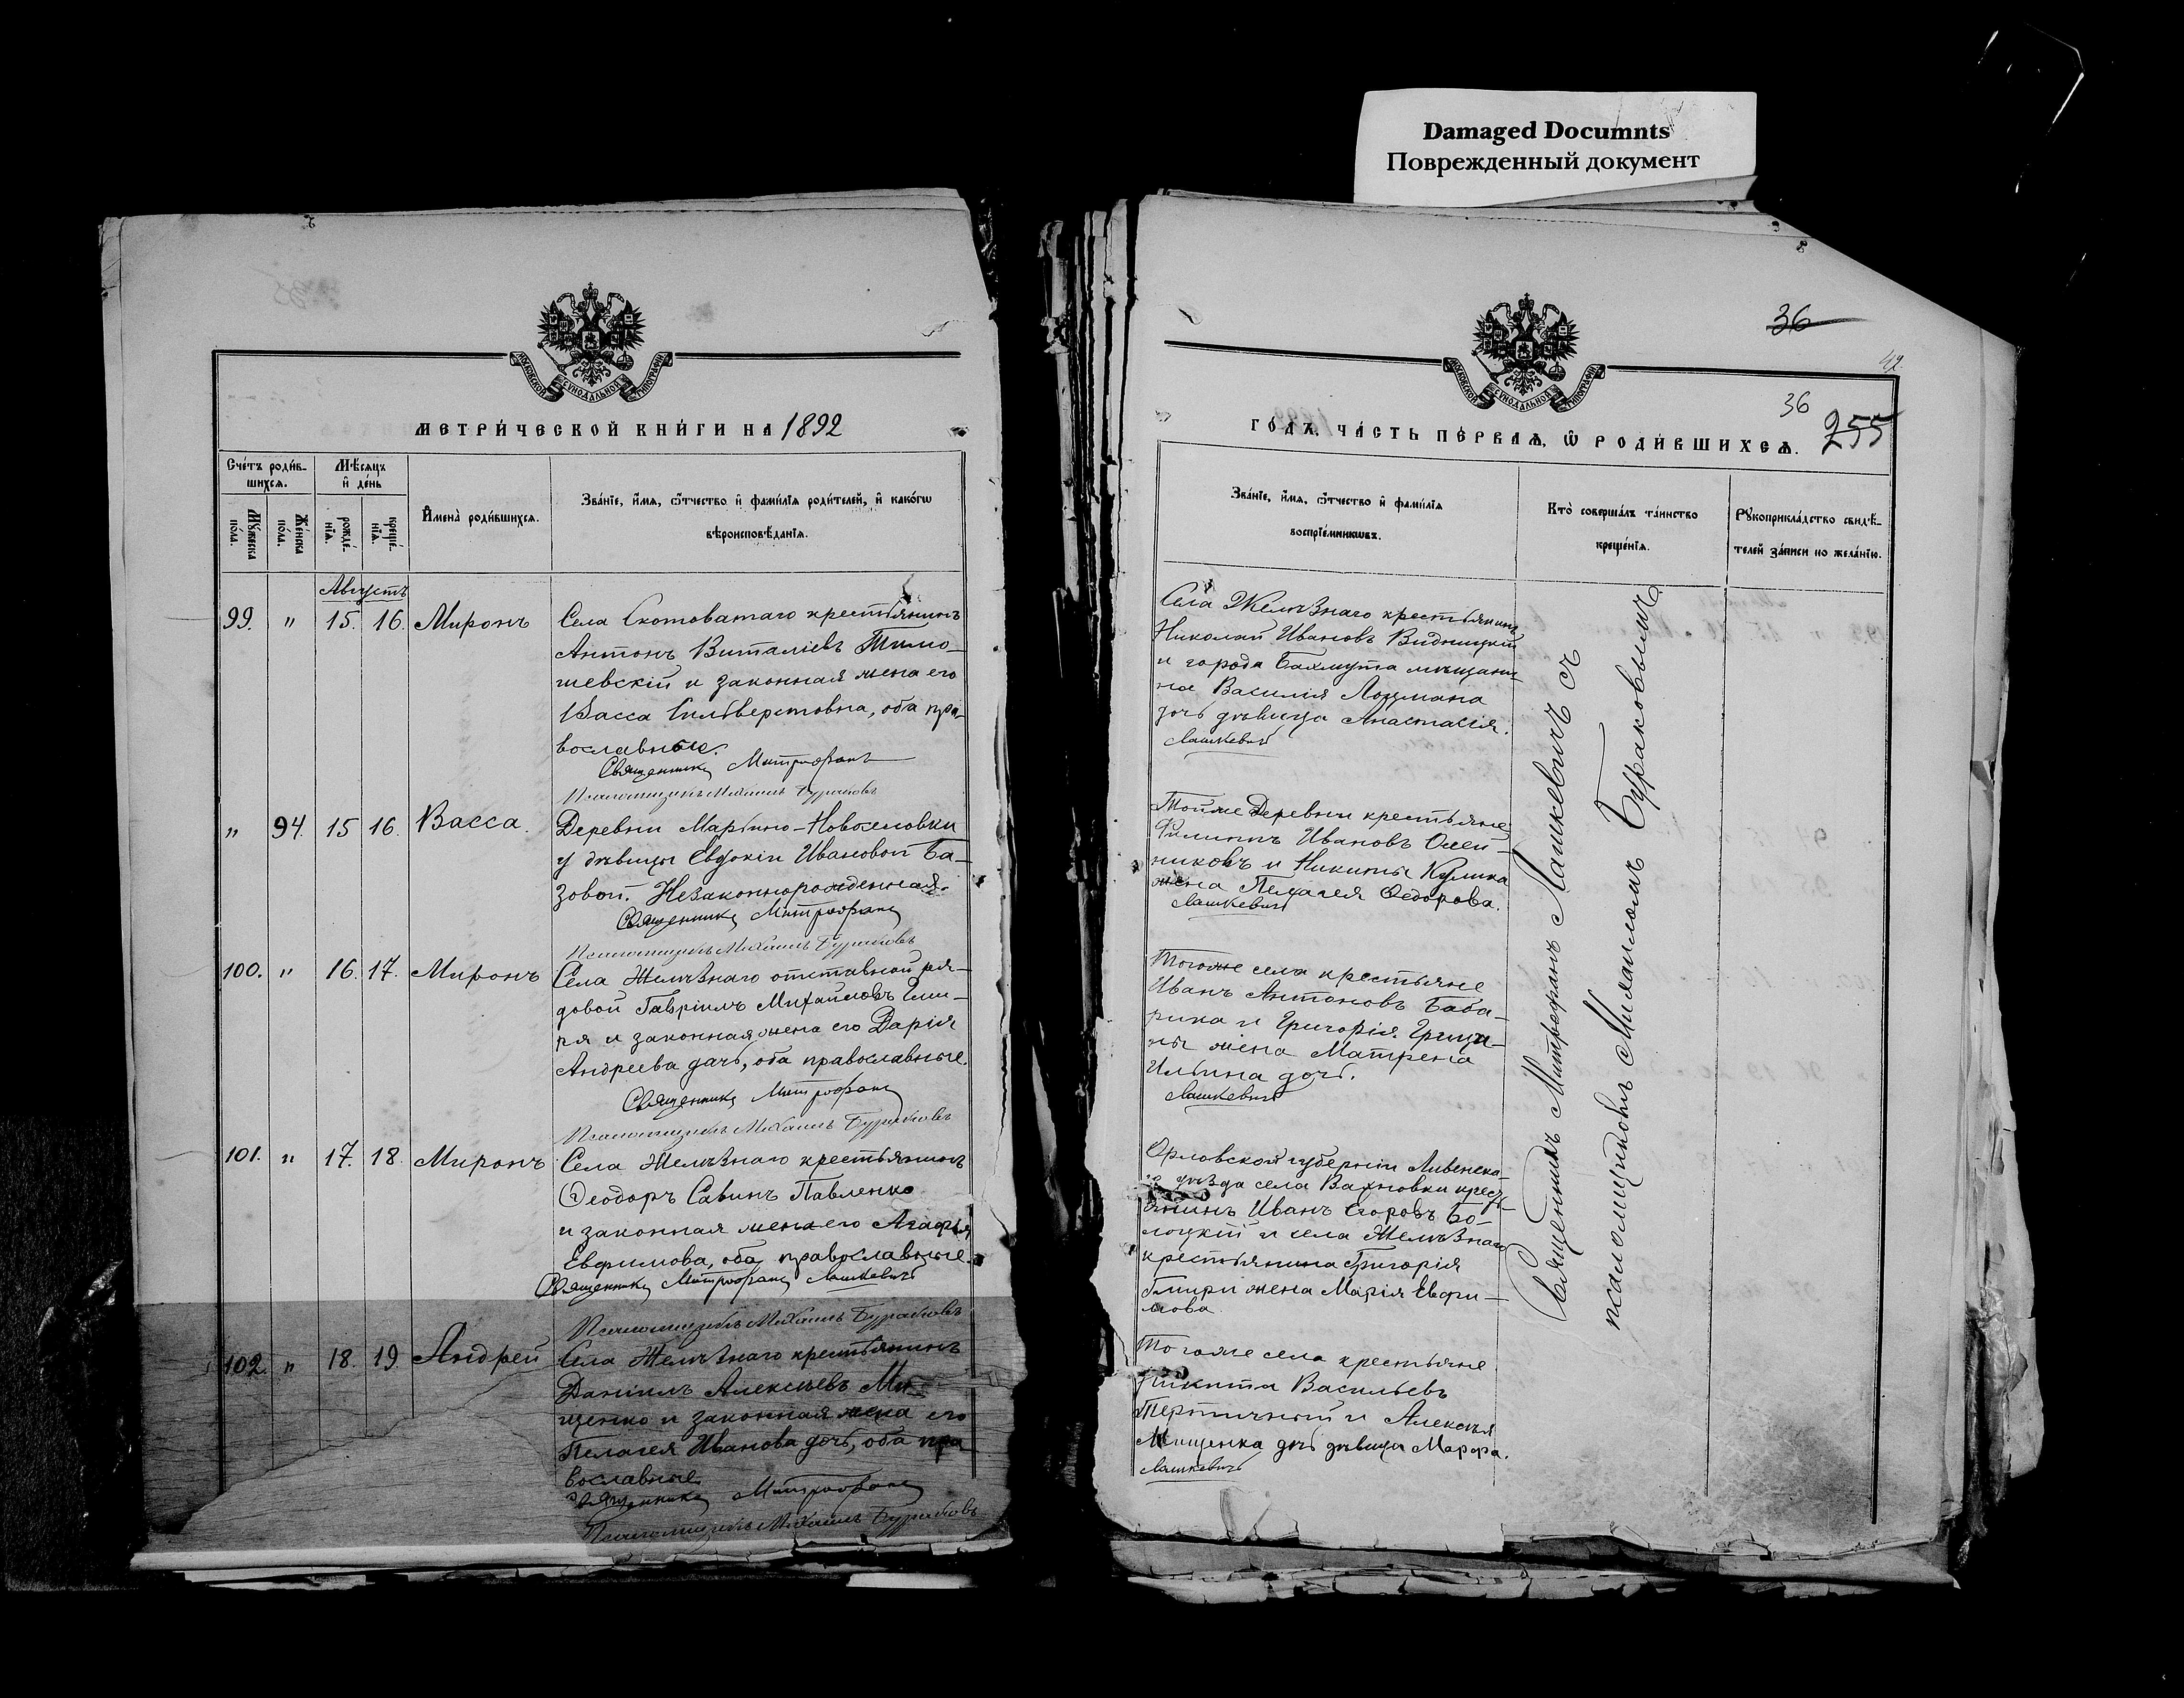 Damaged Documnts
Поврежденный документ
МОСКОВСКОЙ СѴНОДАЛЬНОЙ ТИПОГРАФІИ
МЕТРИ́ЧЕСКОЙ КНИ́ГИ НА 1892
Сче́тъ роди́в-
шихсѧ.
Мѣ́сѧцъ
и҆ де́нь
Мꙋ́жеска
по́ла.
Же́нска
по́ла.
рожде́-
нїѧ.
креще́-
нїѧ.
И҆мена̀ роди́вшихсѧ.
Зва́нїе, и҆́мѧ, ѻ҆́тчество и҆ фами́лїѧ роди́телей, и҆ како́гѡ
вѣроисповѣ́данїѧ.
Августъ
99. " 15. 16. Миронъ Села Скотоватаго крестьянинъ
Антонъ Виталіевъ Тимо-
шевскій и законная жена его
Васса Сильверстовна, оба пра-
вославные.
Священникъ Митрофанъ
Псаломщикъ Михаилъ Бураковъ
" 94. 15 16. Васса. Деревни Марьино-Новоселовки
у дѣвицы Евдокіи Ивановой Ба-
зовой. Незаконнорожденная.
Священникъ Митрофанъ
Псаломщикъ Михаилъ Бураковъ
100. " 16. 17. Миронъ Села Желѣзнаго отставной ря-
довой Гавріилъ Михайловъ
и законная жена его Дарія
Андреева дочь, оба православные.
Священникъ Митрофанъ
Псаломщикъ Михаилъ Бураковъ
101. " 17. 18. Миронъ Села Желѣзнаго крестьянинъ
Ѳеодоръ Савинъ Павленко
и законная жена его Агафья
Евфимова, оба православные.
Священникъ Митрофанъ Лашкевичъ
Псаломщикъ Михаилъ Бураковъ
102. " 18. 19. Андрей Села Желѣзнаго крестьянинъ
Даніилъ Алексѣевъ Ми-
щенко и законная жена его
Пелагея Иванова дочь, оба пра
вославные
Священникъ Митрофанъ
Псаломщикъ Михаилъ Бураковъ
36
42.
МОСКОВСКОЙ СѴНОДАЛЬНОЙ ТИПОГРАФІИ
36
255
ГО́ДЪ, ЧА́СТЬ ПЕ́РВАѦ, Ѡ҆ РОДИ́ВШИХСѦ.
Зва́нїе, и҆́мѧ, ѻ҆́тчество и҆ фами́лїѧ
воспрїе́мникѡвъ.
Кто̀ соверша́лъ та́инство
креще́нїѧ.
Рꙋкоприкла́дство свидѣ́-
телей за́писи по жела́нїю.
Села Желѣзнаго крестьянинъ
Николай Ивановъ Видницкій
и города Бахмута мѣщани
на Василія Лоцмана
дочь дѣвица Анастасія.
Лашкевичъ
Тойже Деревни крестьяне
Филиппъ Ивановъ Олей-
никовъ и Никиты Кулика
жена Пелагея Ѳедорова.
Лашкевичъ
Тогоже села крестьяне
Иванъ Антоновъ Баба-
рика и Григорія
жена Матрена
Ильина дочь.
Лашкевичъ
Орловской губерніи Ливенска-
го уѣзда села Вахновки крест-
янинъ Иванъ Егоровъ Бо-
лоцкій и села Желѣзнаго
крестьянина Григорія
Гмири жена Марія Евфи-
мова.
Тогоже села крестьяне
Никита Васильевъ
Терпичный и Алексѣя
Мищенка дочь дѣвица Марфа.
Лашкевичъ
Священникъ Митрофанъ Лашкевичъ съ
псаломщикомъ Михаиломъ Бураковымъ